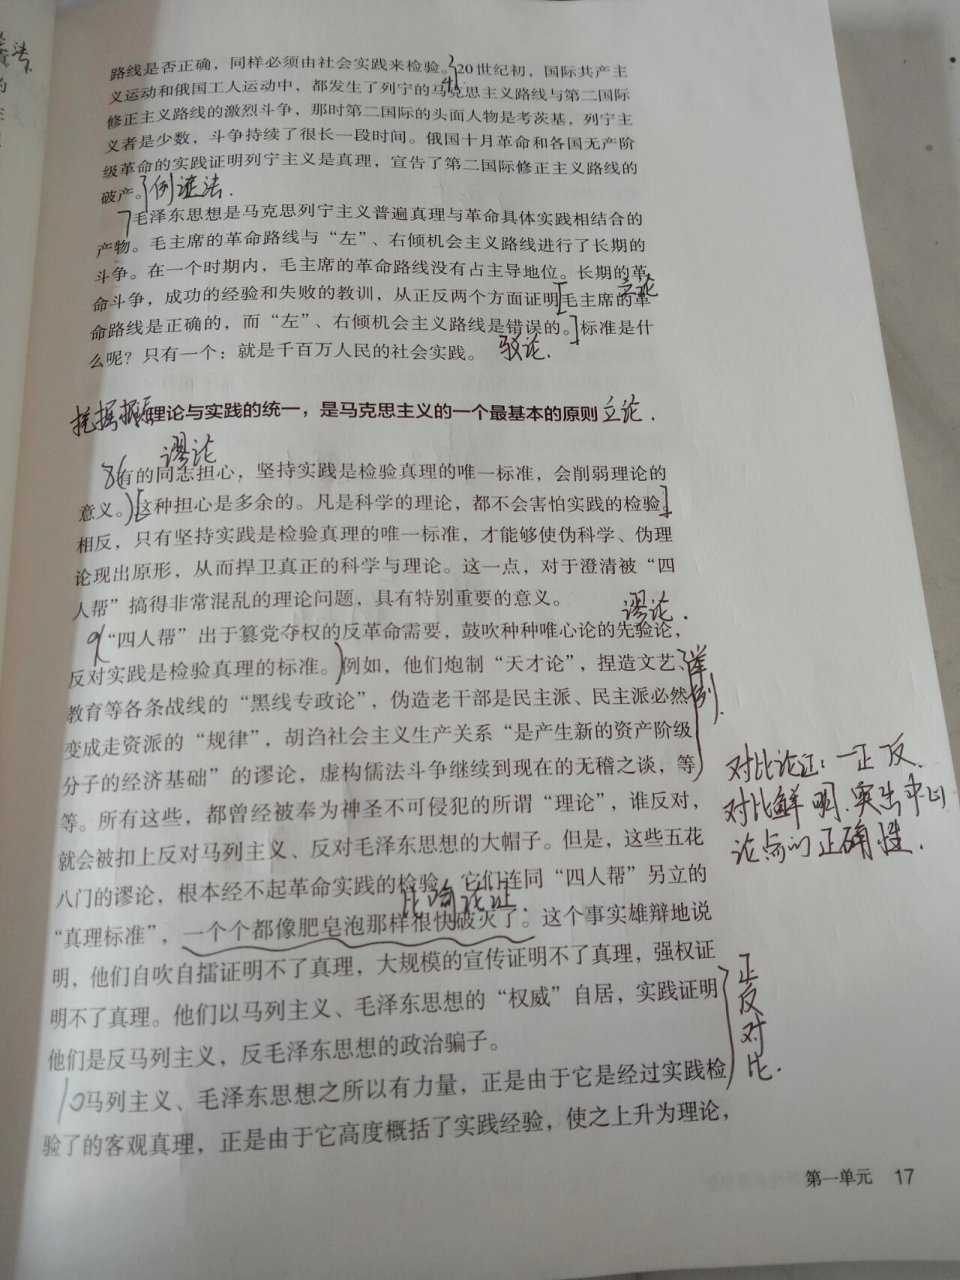 路线是否正确，同样必须由社会实践来检验。20世纪初，国际共产主
义运动和俄国工人运动中，都发生了列宁的马克思主义路线与第二国际
修正主义路线的激烈斗争，那时第二国际的头面人物是考茨基，列宁主
义者是少数，斗争持续了很长一段时间。俄国十月革命和各国无产阶
级革命的实践证明列宁主义是真理，宣告了第二国际修正主义路线的
破产。例证法.
7毛泽东思想是马克思列宁主义普遍真理与革命具体实践相结合的
产物。毛主席的革命路线与“左”、右倾机会主义路线进行了长期的
斗争。在一个时期内，毛主席的革命路线没有占主导地位。长期的革
立论
命斗争，成功的经验和失败的教训，从正反两个方面证明[毛主席的革
命路线是正确的，而“左”、右倾机会主义路线是错误的。]标准是什
么呢？只有一个：就是千百万人民的社会实践。 驳论.
理论与实践的统一，是马克思主义的一个最基本的原则 立论.
谬论
8(有的同志担心，坚持实践是检验真理的唯一标准，会削弱理论的
意义。)[这种担心是多余的。凡是科学的理论，都不会害怕实践的检验]
相反，只有坚持实践是检验真理的唯一标准，才能够使伪科学、伪理
论现出原形，从而捍卫真正的科学与理论。这一点，对于澄清被“四
人帮”搞得非常混乱的理论问题，具有特别重要的意义。
谬论.
9(“四人帮”出于篡党夺权的反革命需要，鼓吹种种唯心论的先验论，
反对实践是检验真理的标准。)例如，他们炮制“天才论”，捏造文艺、
教育等各条战线的“黑线专政论”，伪造老干部是民主派、民主派必然
变成走资派的“规律”，胡诌社会主义生产关系“是产生新的资产阶级
分子的经济基础”的谬论，虚构儒法斗争继续到现在的无稽之谈，等
等。所有这些，都曾经被奉为神圣不可侵犯的所谓“理论”，谁反对，
就会被扣上反对马列主义、反对毛泽东思想的大帽子。但是，这些五花
八门的谬论，根本经不起革命实践的检验，它们连同“四人帮”另立的
比喻论证.
“真理标准”，一个个都像肥皂泡那样很快破灭了。这个事实雄辩地说
明，他们自吹自擂证明不了真理，大规模的宣传证明不了真理，强权证
明不了真理。他们以马列主义、毛泽东思想的“权威”自居，实践证明
他们是反马列主义，反毛泽东思想的政治骗子。
10马列主义、毛泽东思想之所以有力量，正是由于它是经过实践检
验了的客观真理，正是由于它高度概括了实践经验，使之上升为理论，
对比论证：一正一反.
对比鲜明.突出中心
论点的正确性.
正
反
对
比.
第一单元 17